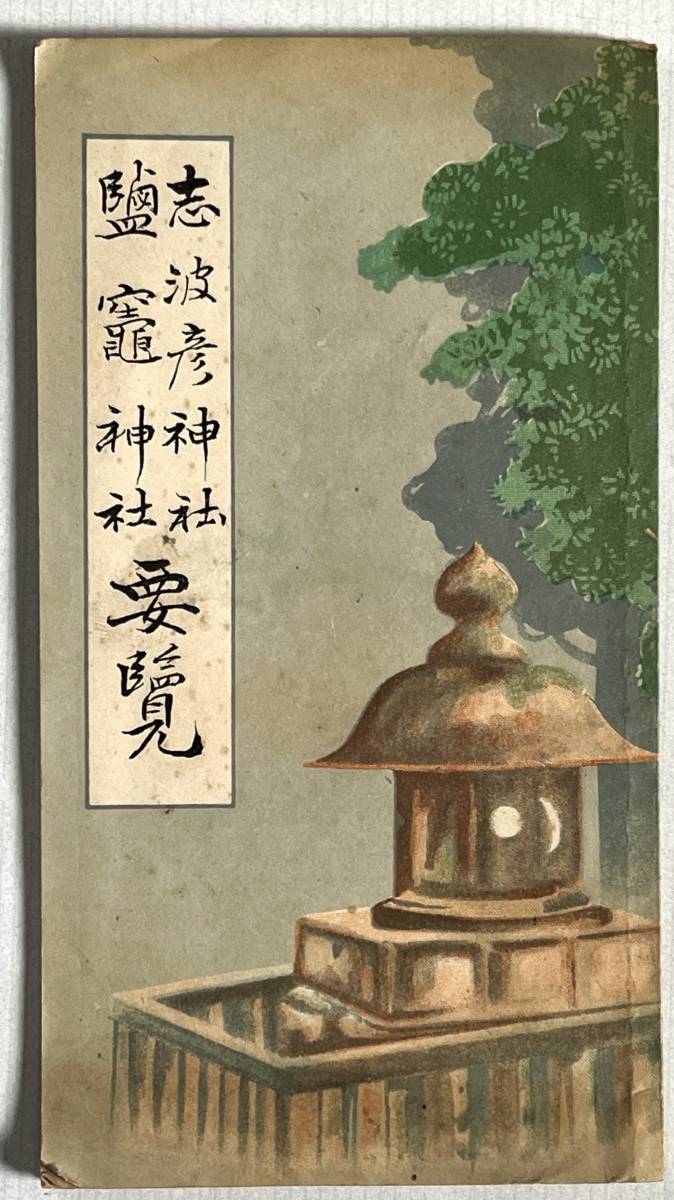 志波彦神社
鹽竈神社
要覽